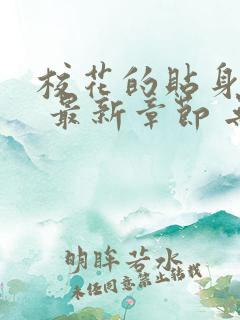 校花的貼身
最新章節
明眸若水
未经同意禁止转载